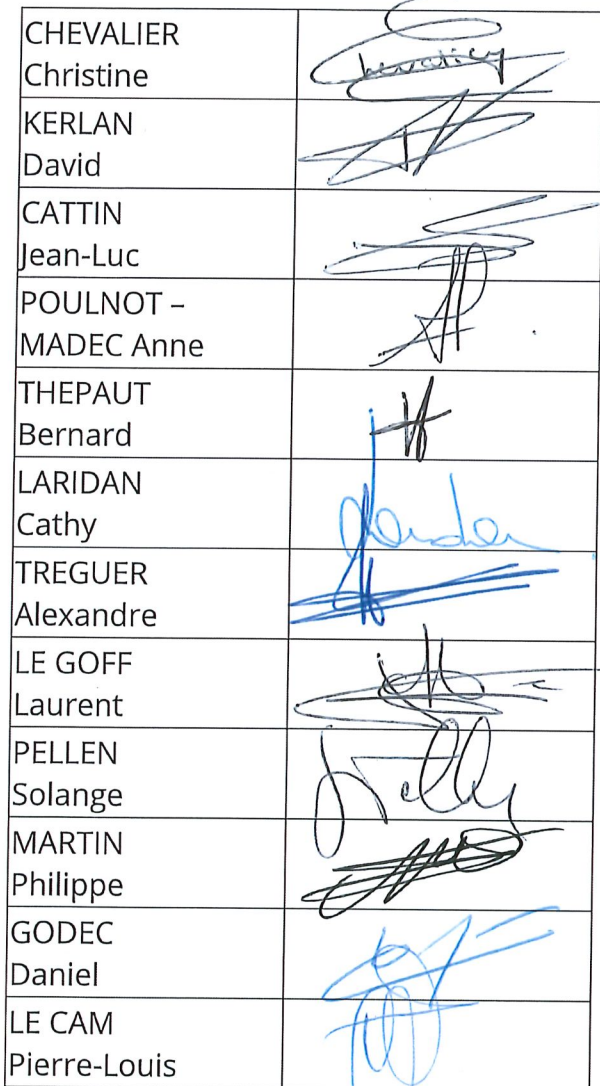 CHEVALIER
Christine
Chevalier
KERLAN
David
CATTIN
Jean-Luc
POULNOT –
MADEC Anne
THEPAUT
Bernard
LARIDAN
Cathy
TREGUER
Alexandre
LE GOFF
Laurent
PELLEN
Solange
MARTIN
Philippe
GODEC
Daniel
LE CAM
Pierre-Louis